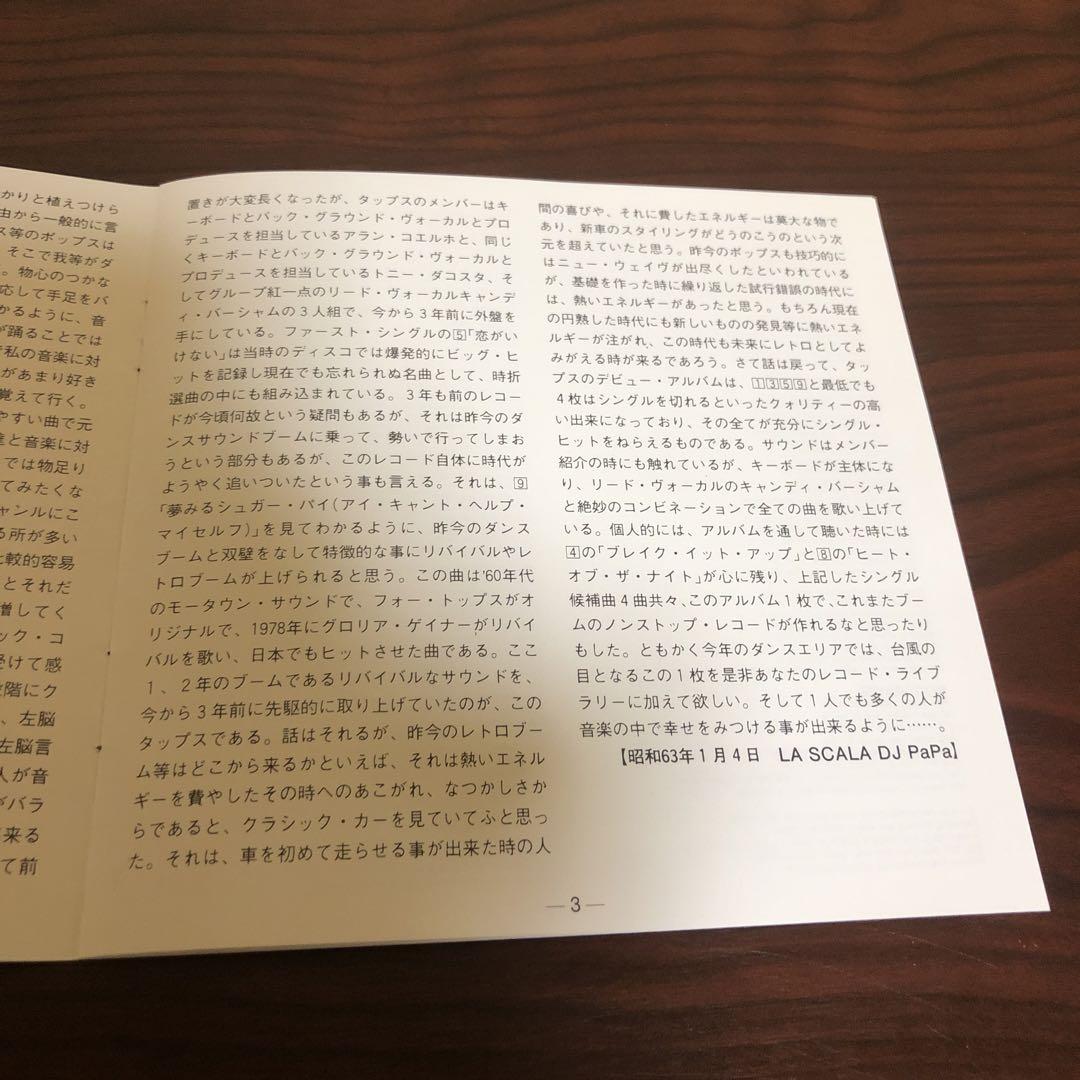 かりと植えつけら
由から一般的に言
ス等のポップスは
。そこで我等がダ
。物心のつかな
応して手足をバ
かるように、音
が踊ることでは
で私の音楽に対
があまり好き
覚えて行く。
やすい曲で元
達と音楽に対
では物足り
てみたくな
ャンルにこ
る所が多い
比較的容易
とそれだ
増してく
ック・コ
受けて感
段階にク
、左脳
左脳言
人が音
がバラ
来る
て前
置きが大変長くなったが、タップスのメンバーはキ
ーボードとバック・グラウンド・ヴォーカルとプロ
デュースを担当しているアラン・コエルホと、同じ
くキーボードとバック・グラウンド・ヴォーカルと
プロデュースを担当しているトニー・ダコスタ、そ
してグループ紅一点のリード・ヴォーカルキャンデ
ィ・バーシャムの3人組で、今から3年前に外盤を
手にしている。ファースト・シングルの5「恋がい
けない」は当時のディスコでは爆発的にビッグ・ヒ
ットを記録し現在でも忘れられぬ名曲として、時折
選曲の中にも組み込まれている。3年も前のレコー
ドが今頃何故という疑問もあるが、それは昨今のダ
ンスサウンドブームに乗って、勢いで行ってしまお
うという部分もあるが、このレコード自体に時代が
ようやく追いついたという事も言える。それは、9
「夢みるシュガー・パイ(アイ・キャント・ヘルプ・
マイセルフ)」を見てわかるように、昨今のダンス
ブームと双壁をなして特徴的な事にリバイバルやレ
トロブームが上げられると思う。この曲は'60年代
のモータウン・サウンドで、フォー・トップスがオ
リジナルで、1978年にグロリア・ゲイナーがリバイ
バルを歌い、日本でもヒットさせた曲である。ここ
1、2年のブームであるリバイバルなサウンドを、
今から3年前に先駆的に取り上げていたのが、この
タップスである。話はそれるが、昨今のレトロブー
ム等はどこから来るかといえば、それは熱いエネル
ギーを費やしたその時へのあこがれ、なつかしさか
らであると、クラシック・カーを見ていてふと思っ
た。それは、車を初めて走らせる事が出来た時の人
間の喜びや、それに費したエネルギーは莫大な物で
あり、新車のスタイリングがどうのこうのという次
元を超えていたと思う。昨今のポップスも技巧的に
はニュー・ウェイヴが出尽くしたといわれている
が、基礎を作った時に繰り返した試行錯誤の時代に
は、熱いエネルギーがあったと思う。もちろん現在
の円熟した時代にも新しいものの発見等に熱いエネ
ルギーが注がれ、この時代も未来にレトロとしてよ
みがえる時が来るであろう。さて話は戻って、タッ
プスのデビュー・アルバムは、1359と最低でも
4枚はシングルを切れるといったクォリティーの高
い出来になっており、その全てが充分にシングル・
ヒットをねらえるものである。サウンドはメンバー
紹介の時にも触れているが、キーボードが主体にな
り、リード・ヴォーカルのキャンディ・バーシャム
と絶妙のコンビネーションで全ての曲を歌い上げて
いる。個人的には、アルバムを通して聴いた時には
4の「ブレイク・イット・アップ」と8の「ヒート・
オブ・ザ・ナイト」が心に残り、上記したシングル
候補曲4曲共々、このアルバム1枚で、これまたブー
ムのノンストップ・レコードが作れるなと思ったり
もした。ともかく今年のダンスエリアでは、台風の
目となるこの1枚を是非あなたのレコード・ライブ
ラリーに加えて欲しい。そして1人でも多くの人が
音楽の中で幸せをみつける事が出来るように……。
【昭和63年1月4日　LA SCALA DJ PaPa】
—3—